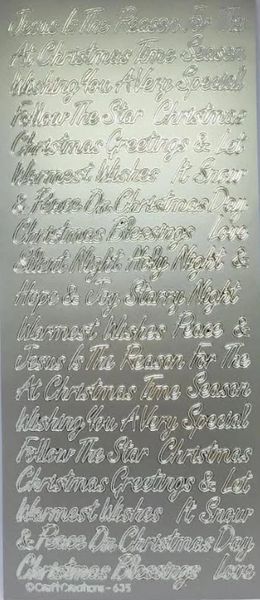 Jesus Is The Reason For The
At Christmas Time Season
Wishing You A Very Special
Follow The Star Christmas
Christmas Greetings & Let
Warmest Wishes It Snow
& Peace On Christmas Day
Christmas Blessings Love
Silent Night Holy Night &
Hope & Joy Starry Night
Warmest Wishes Peace &
Jesus Is The Reason For The
At Christmas Time Season
Wishing You A Very Special
Follow The Star Christmas
Christmas Greetings & Let
Warmest Wishes It Snow
& Peace On Christmas Day
Christmas Blessings Love
© Craft Creations - 635